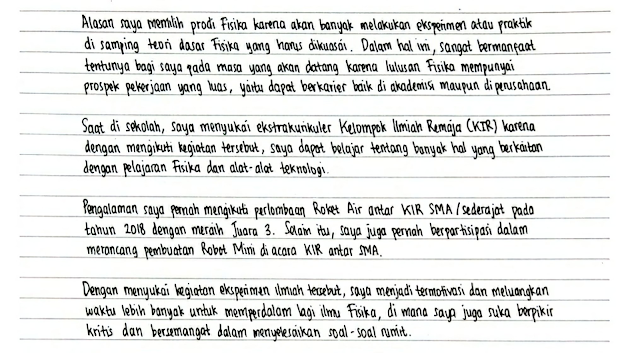 Alasan saya memilih prodi Fisika karena akan banyak melakukan eksperimen atau praktik
di samping teori dasar Fisika yang harus dikuasai. Dalam hal ini, sangat bermanfaat
tentunya bagi saya pada masa yang akan datang karena lulusan Fisika mempunyai
prospek pekerjaan yang luas, yaitu dapat berkarier baik di akademisi maupun di perusahaan.
Saat di sekolah, saya menyukai ekstrakurikuler Kelompok Ilmiah Remaja (KIR) karena
dengan mengikuti kegiatan tersebut, saya dapat belajar tentang banyak hal yang berkaitan
dengan pelajaran Fisika dan alat-alat teknologi.
Pengalaman saya pernah mengikuti perlombaan Roket Air antar KIR SMA/sederajat pada
tahun 2018 dengan meraih Juara 3. Selain itu, saya juga pernah berpartisipasi dalam
merancang pembuatan Robot Mini di acara KIR antar SMA.
Dengan menyukai kegiatan eksperimen ilmiah tersebut, saya menjadi termotivasi dan meluangkan
waktu lebih banyak untuk memperdalam lagi ilmu Fisika, di mana saya juga suka berpikir
kritis dan bersemangat dalam menyelesaikan soal-soal rumit.